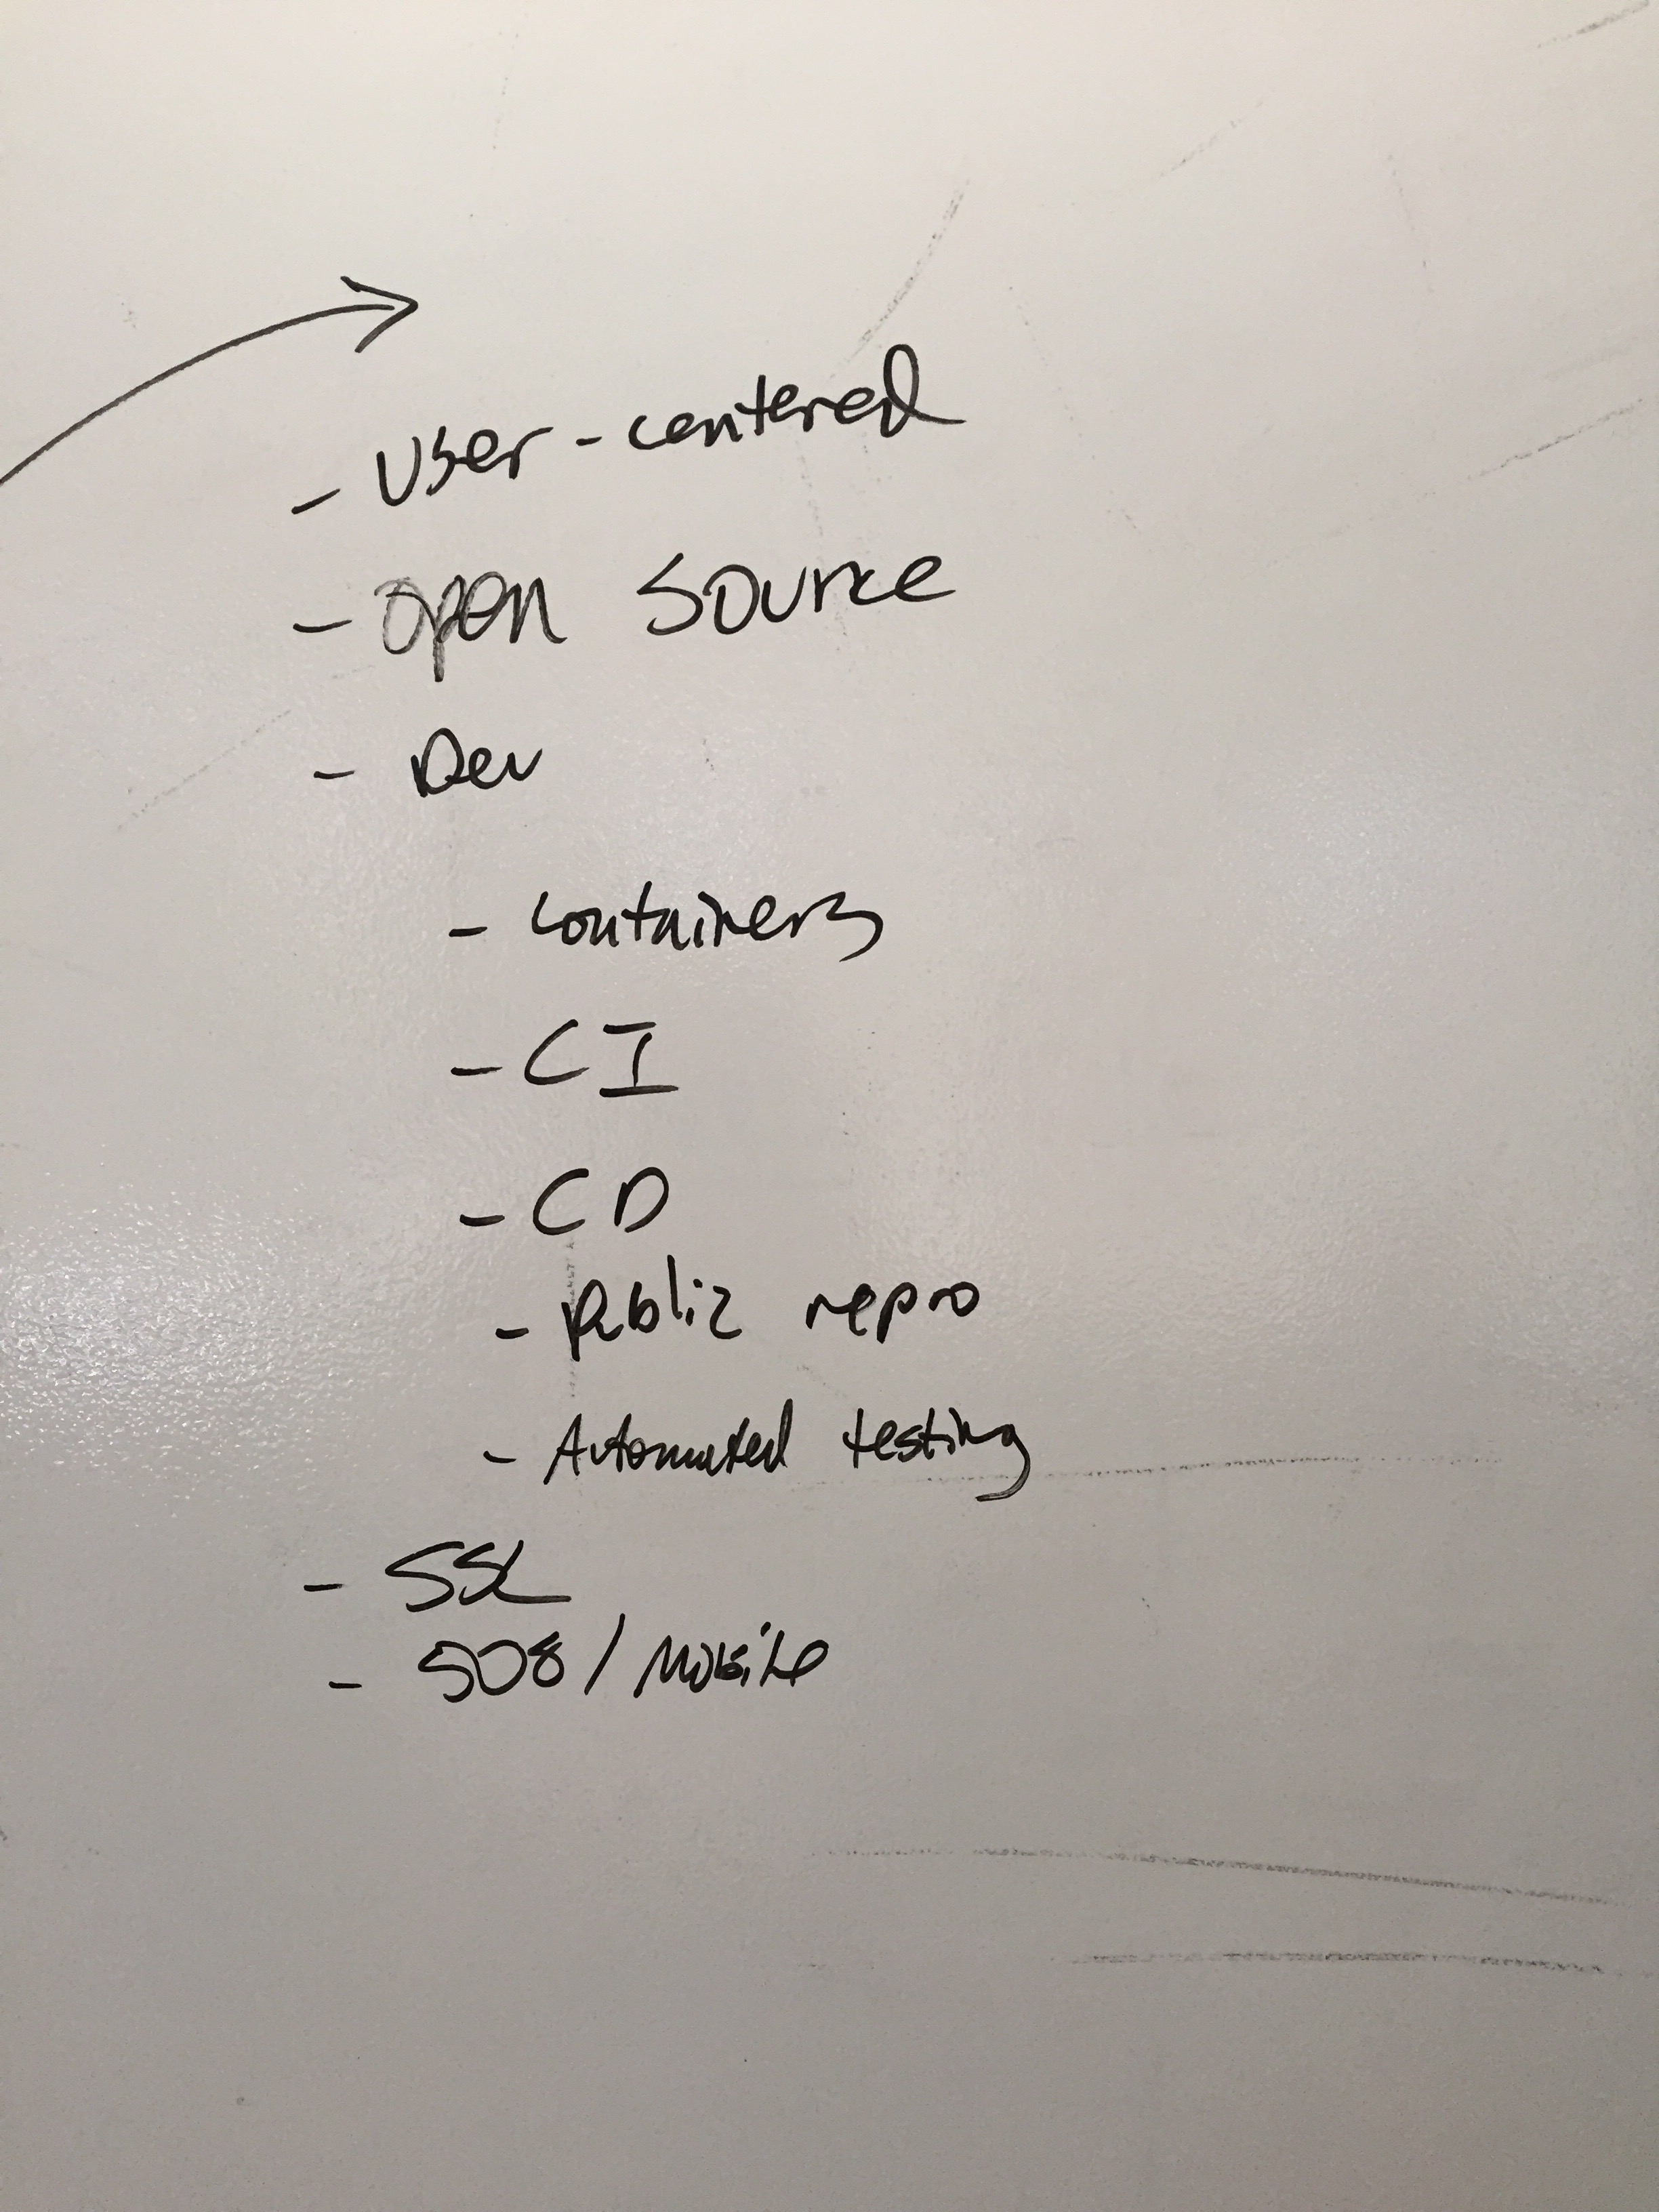 - User-centered
- Open Source
- Dev
- Containers
- CI
- CD
- Public repro
- Automated testing
- SSL
- 508/Mobile